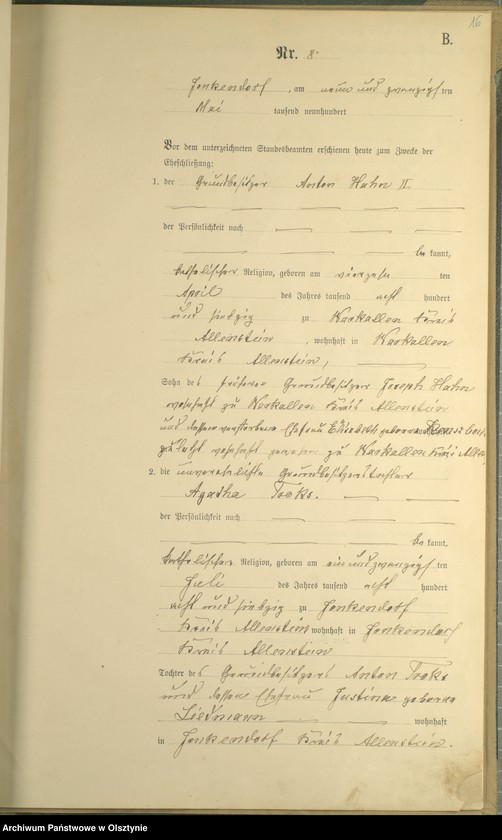 16
B.
Nr. 8.
Jonkendorf, am neun und zwanzigsten
Mai tausend neunhundert
Vor dem unterzeichneten Standesbeamten erschienen heute zum Zwecke der
Eheschließung:
1. der Grundbesitzer Anton Hahn II
der Persönlichkeit nach
be kannt,
katholischer Religion, geboren am vierzehn ten
April des Jahres tausend acht hundert
und siebzig zu Warkallen Kreis
Allenstein, wohnhaft in Warkallen
Kreis Allenstein,
Sohn des früheren Grundbesitzer Joseph Hahn
wohnhaft zu Warkallen Kreis Allenstein
und dessen verstorbene Ehefrau Elisabeth geborene
zuletzt wohnhaft gewesen zu Warkallen Kreis
2. die unverehelichte Grundbesitzertochter
Agatha
der Persönlichkeit nach
be kannt,
katholischer Religion, geboren am einundzwanzigsten
Juli des Jahres tausend acht hundert
acht und siebzig zu Jonkendorf
Kreis Allenstein wohnhaft in Jonkendorf
Kreis Allenstein
Tochter des Grundbesitzers Anton
und dessen Ehefrau Justina geborene
Liedmann wohnhaft
in Jonkendorf Kreis Allenstein.
Archiwum Państwowe w Olsztynie